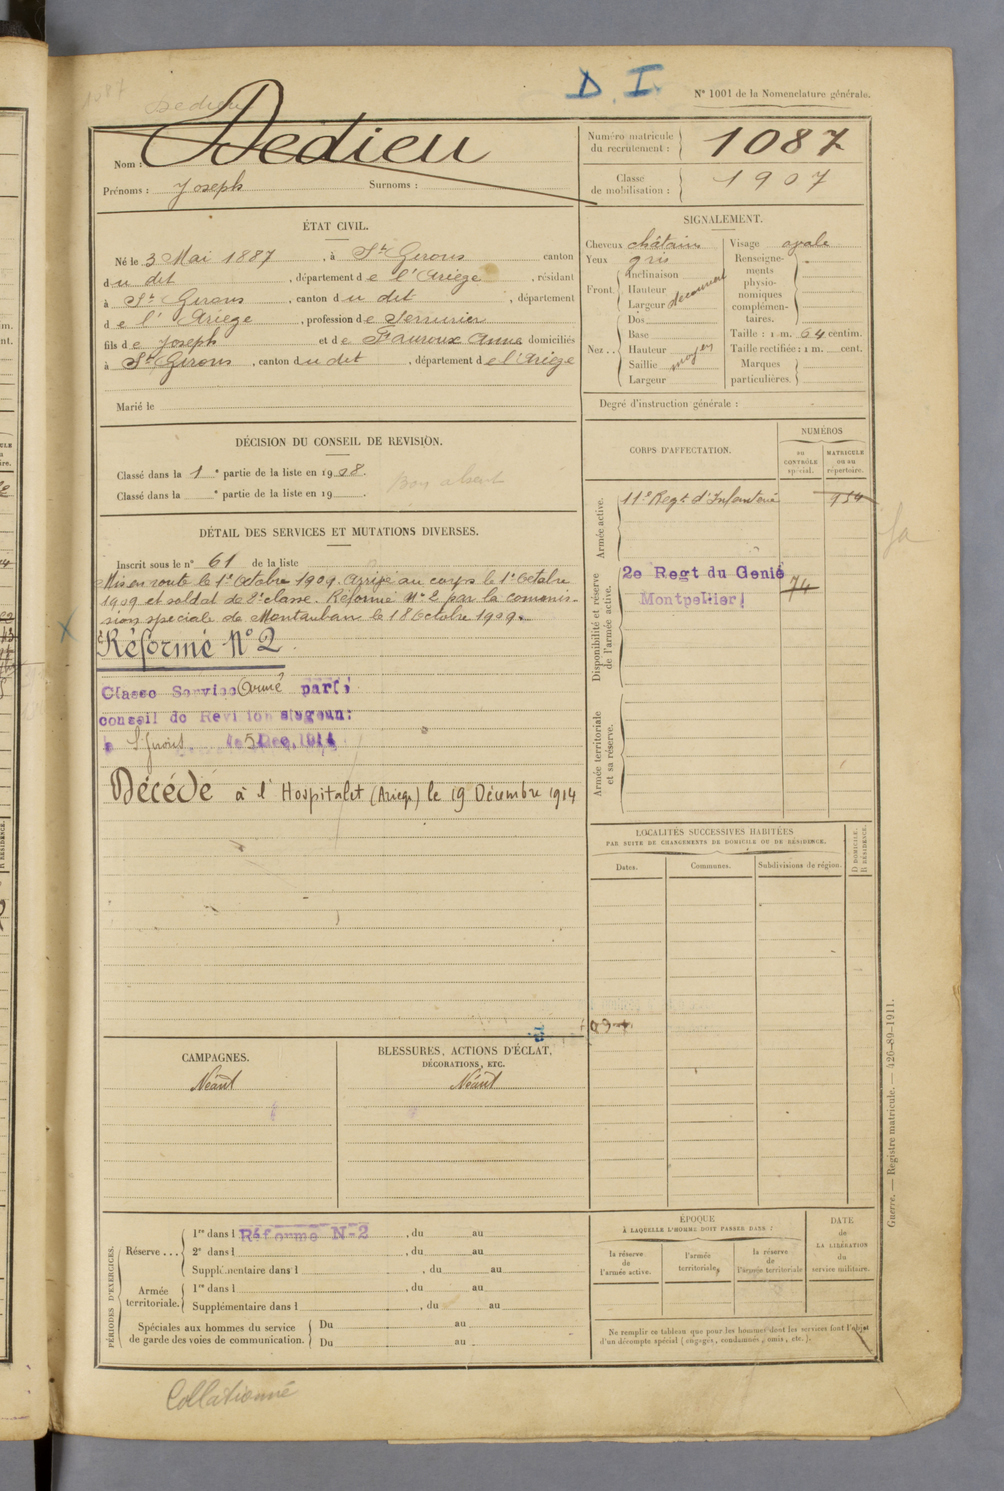 D. I.
N° 1001 de la Nomenclature générale.
Dedieu
Nom : Dedieu
Prénoms : Joseph Surnoms :
Numéro matricule du recrutement : 1087
Classe de mobilisation : 1907
ÉTAT CIVIL.
Né le 3 Mai 1887, à St Girons canton
du dit, département de l'Ariège, résidant
à St Girons, canton du dit, département
de l'Ariège, profession de Serrurier
fils de Joseph et de Fauroux Anne domiciliés
à St Girons, canton du dit, département de l'Ariège
Marié le
SIGNALEMENT.
Cheveux châtains
Yeux gris
Front. Inclinaison
Hauteur
Largeur découvert
Nez.. Dos
Base
Hauteur moyen
Saillie
Largeur
Visage ovale
Renseigne-
ments
physio-
nomiques
complémen-
taires.
Taille : 1 m. 64 centim.
Taille rectifiée : 1 m. cent.
Marques
particulières.
Degré d'instruction générale :
DÉCISION DU CONSEIL DE REVISION.
Classé dans la 1e partie de la liste en 1908.
Classé dans la e partie de la liste en 19
Bon absent
DÉTAIL DES SERVICES ET MUTATIONS DIVERSES.
Inscrit sous le n° 61 de la liste
Mis en route le 1er Octobre 1909. Arrivé au corps le 1er Octobre
1909 et soldat de 2e classe. Réformé N° 2 par la commis-
sion spéciale de Montauban le 18 Octobre 1909.
Réformé N° 2
Classé Service Armé par le
conseil de Revision siégeant
à St Girons le 5 Dec. 1914
Décédé à l'Hospitalet (Ariège) le 19 Décembre 1914
CORPS D'AFFECTATION.
NUMÉROS
au
CONTRÔLE
spécial.
MATRICULE
ou au
répertoire.
Armée active.
11e Regt d'Infanterie 954
Disponibilité et réserve
de l'armée active.
2e Regt du Genie 74
Montpellier
Armée territoriale
et sa réserve.
LOCALITÉS SUCCESSIVES HABITÉES
PAR SUITE DE CHANGEMENTS DE DOMICILE OU DE RÉSIDENCE.
Dates. Communes. Subdivisions de région.
D DOMICILE.
R RÉSIDENCE.
CAMPAGNES.
Néant
BLESSURES, ACTIONS D'ÉCLAT,
DÉCORATIONS, ETC.
Néant
PÉRIODES D'EXERCICES.
Réserve ... 1re dans l Réformé N-2, du au
2e dans l, du au
Supplémentaire dans l, du au
Armée
territoriale. 1re dans l, du au
Supplémentaire dans l, du au
Spéciales aux hommes du service
de garde des voies de communication.
Du au
Du au
ÉPOQUE
À LAQUELLE L'HOMME DOIT PASSER DANS :
la réserve
de
l'armée active.
l'armée
territoriale.
la réserve
de
l'armée territoriale
DATE
de
LA LIBÉRATION
du
service militaire.
Ne remplir ce tableau que pour les hommes dont les services font l'objet
d'un décompte spécial (engagés, condamnés, omis, etc.).
Guerre. — Registre matricule. — 426-89-1911.
Collationné